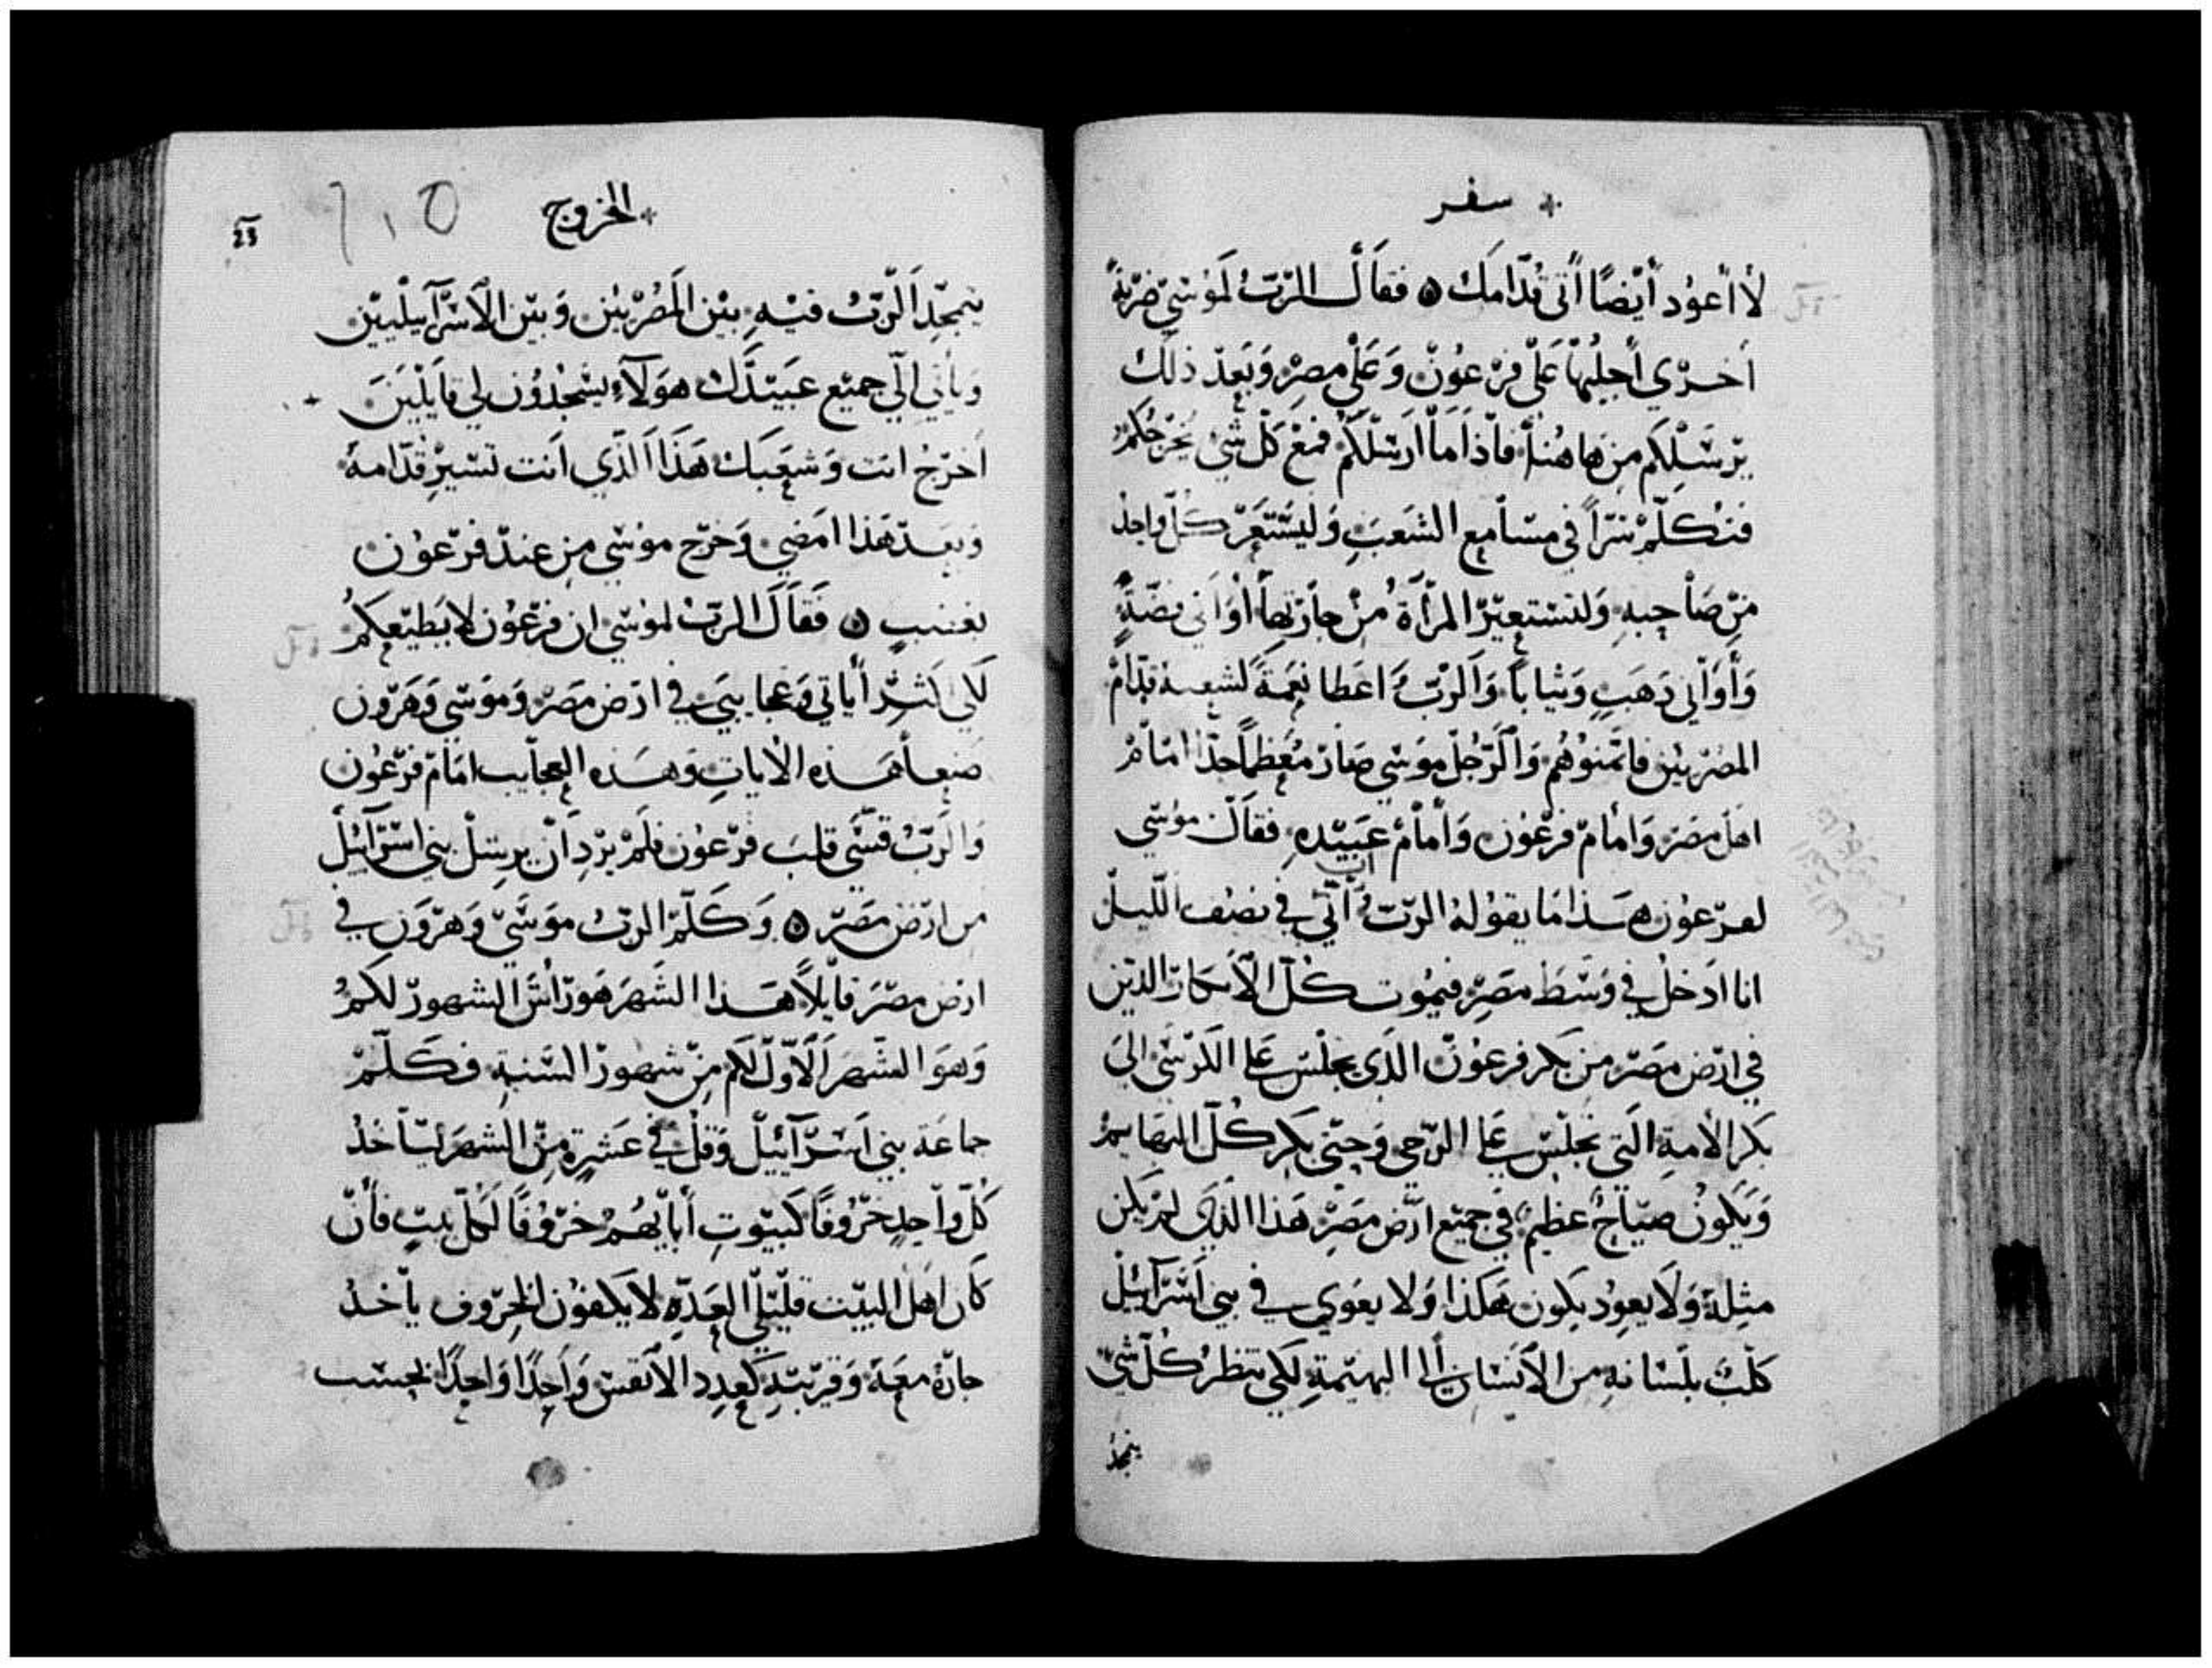 سفر
لا أعود أيضًا أتى قدامك ۞ فقال الرب لموسى ضربة
اخري أجلبها على فرعون وعلى مصر وبعد ذلك
يرسلكم من هاهنا فاذا ما ارسلكم فمع كل شي يخرجكم
فتكلم سرًا في مسامع الشعب وليستعر كل واحد
من صاحبه ولتستعير المرأة من جارتها أواني فضة
وأواني دهب وثيابًا والرب اعطا نعمة لشعبه قدام
المصريين فاتمنوهم والرجل موسي صار معظمًا جدًا امام
اهل مصر وأمام فرعون وأمام عبيده فقال موسي
لفرعون هذا ما يقوله الرب اني في نصف الليل
انا ادخل في وسط مصر فيموت كل الأبكار الدين
في ارض مصر من بكر فرعون الدي يجلس علي الكرسي الي
بكر الامة التي تجلس علي الرحي وحتى بكر كل البهايم
ويكون صياح عظيم في جميع ارض مصر هذا الذي لم يكن
مثله ولا يعود يكون هكذا ولا يعوي في بني اسرآئيل
كلب بلسانه من الانسان إلى البهيمة لكي تنظر كل شي
يمجد
الخروج
23
يمجد الرب فيه بين المصريين وبين الاسرآييليين
ويأتي الي جميع عبيدك هولاء يسجدون لي قايلين
اخرج انت وشعبك هذا الذي انت تسير قدامه
وبعد هذا امضي وخرج موسي من عند فرعون
بغضبٍ ۞ فقال الرب لموسي ان فرعون لا يطيعكم
لكي اكثر أياتي وعجايبي في ارض مصر وموسي وهرون
صنعا هذه الايات وهذه العجايب امام فرعون
والرب قسي قلب فرعون فلم يرد أن يرسل بني اسرآئيل
من ارض مصر ۞ وكلم الرب موسي وهرون في
ارض مصر قايلاً هذا الشهر هو رأس الشهور لكم
وهو الشهر الاول لكم من شهور السنة فكلم
جماعة بني اسرآئيل وقل في عشرة من الشهر ليأخذ
كل واحدٍ خروفًا كبيوت أبايهم خروفًا لكل بيت فأن
كان اهل البيت قليلي العدة لا يكفون الخروف يأخذ
جارة معه وقريبه كعدد الانفس واحدًا واحدًا بحسب